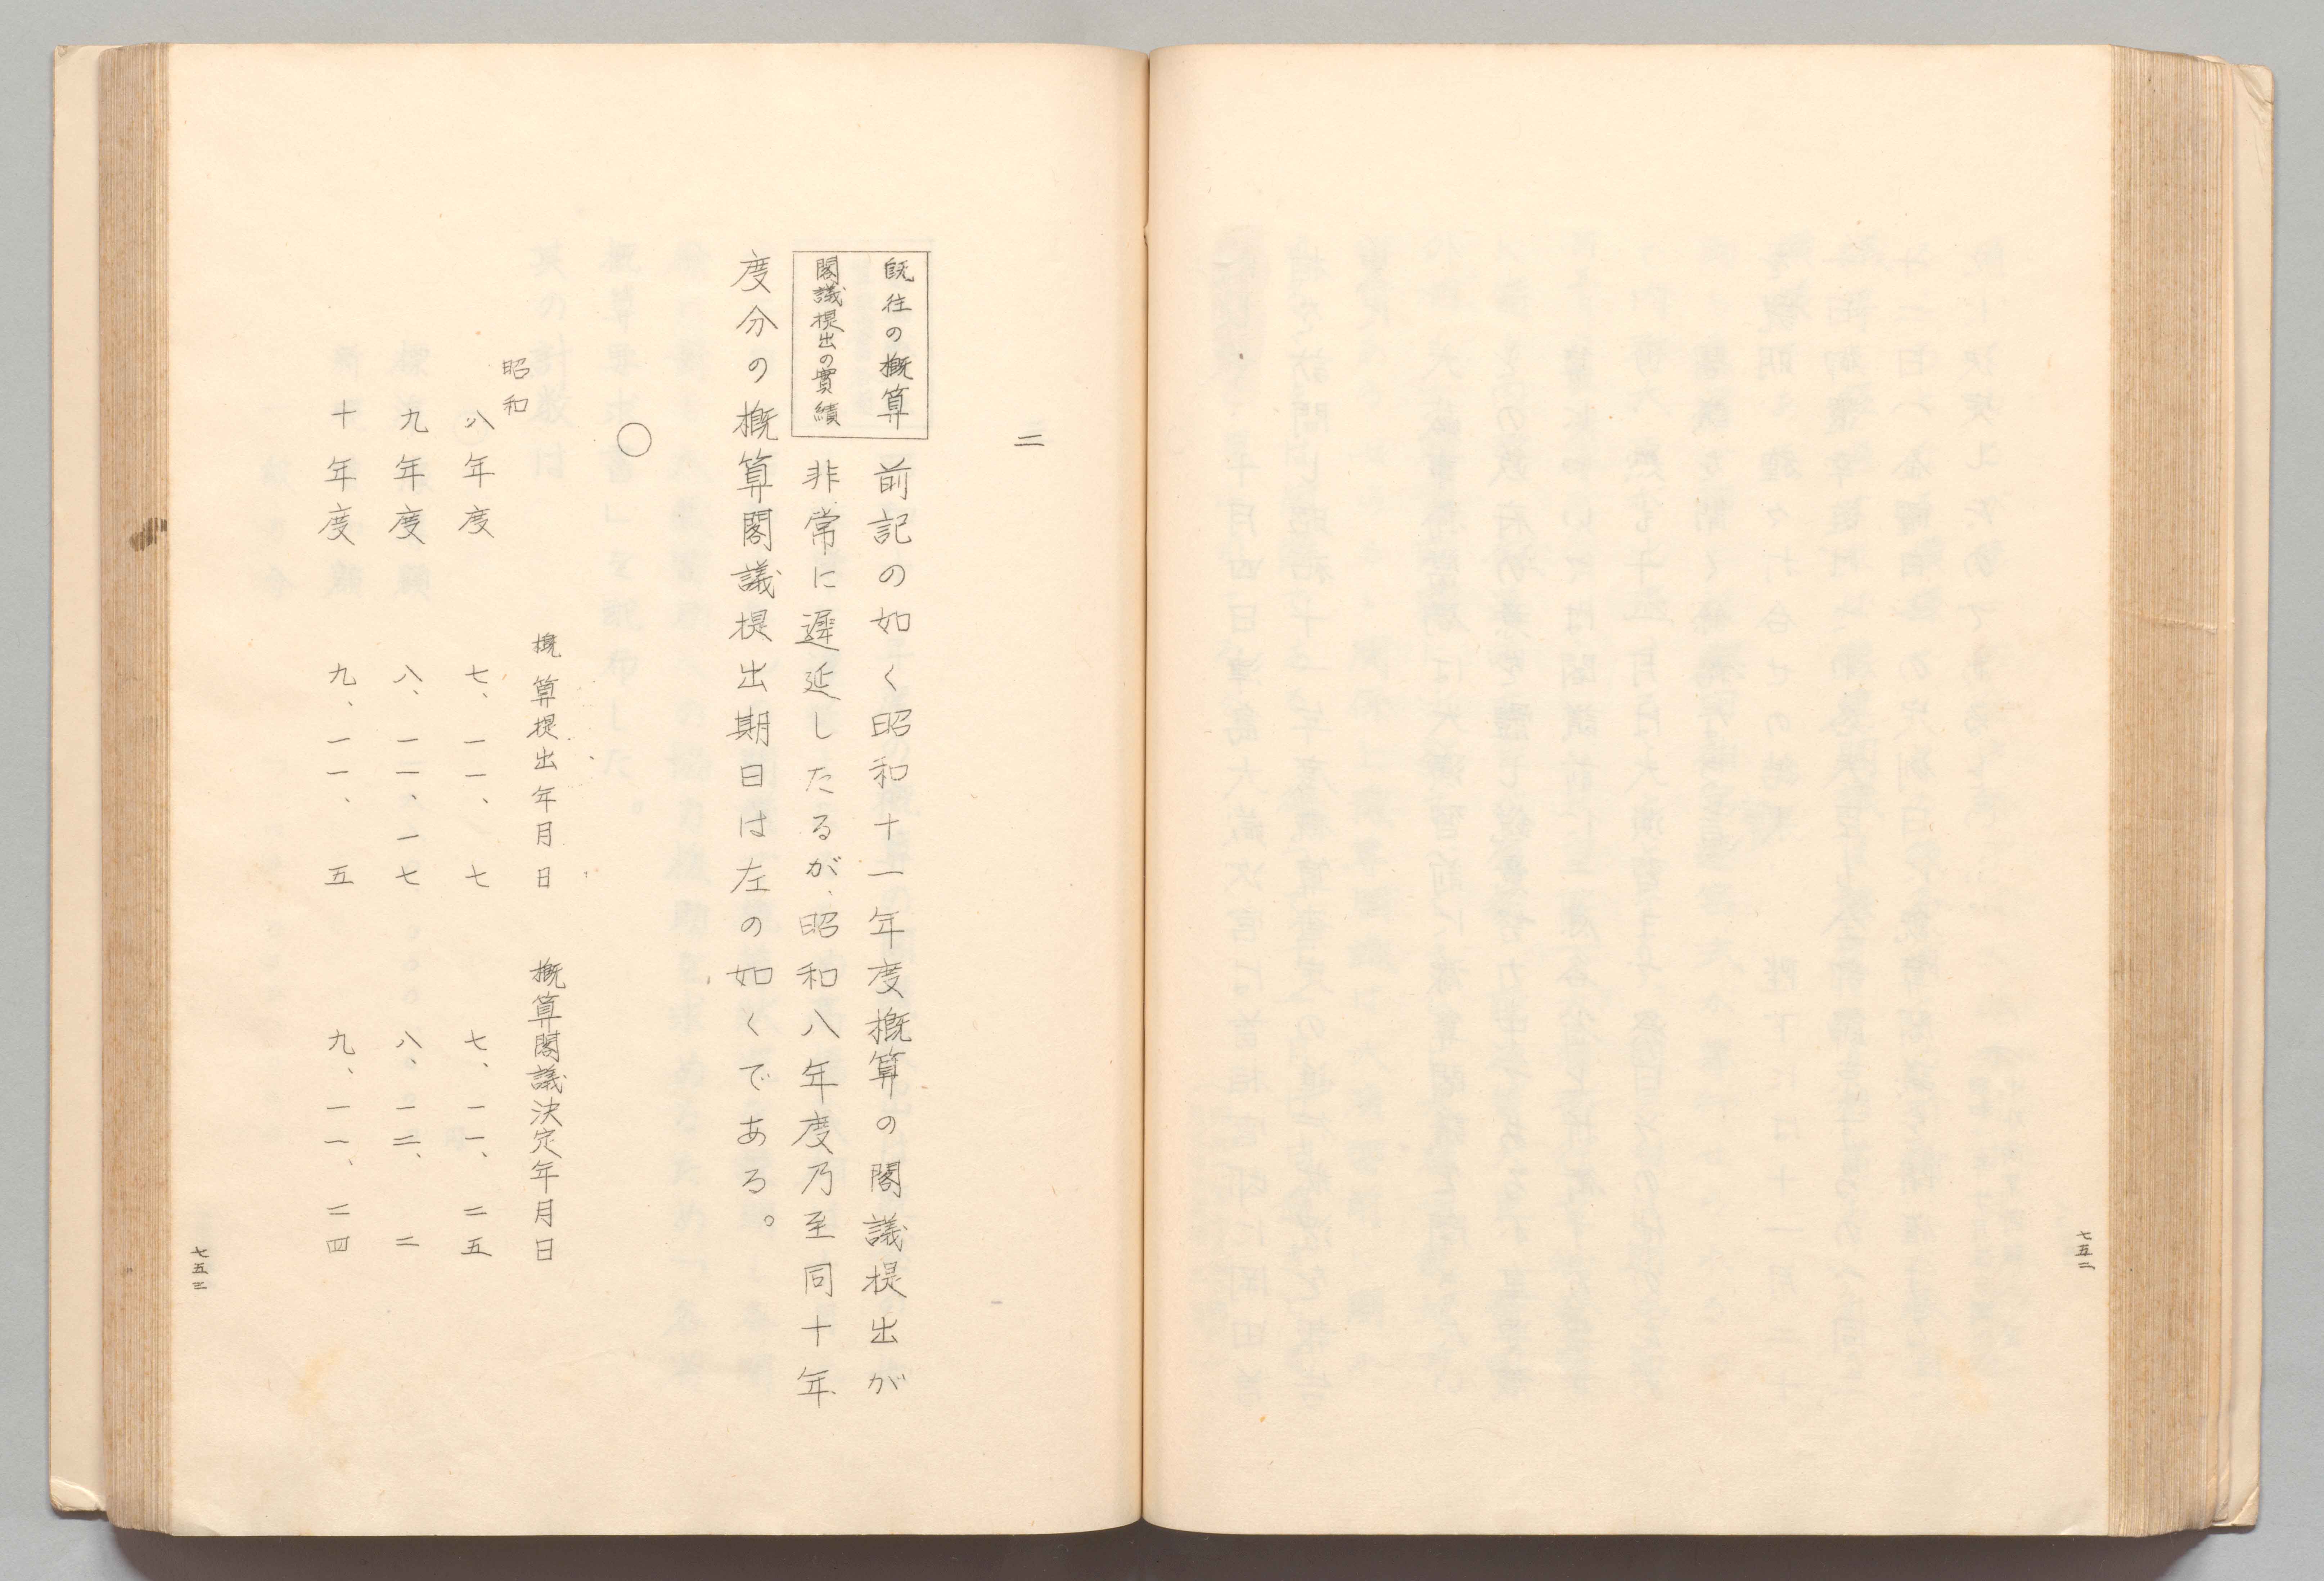 七五二
二
既往の概算
閣議提出の實績
前記の如く昭和十一年度概算の閣議提出が
非常に遲延したるが、昭和八年度乃至同十年
度分の概算閣議提出期日は左の如くである。
○
概算提出年月日　概算閣議決定年月日
昭和
八年度　七、一一、七　七、一一、二五
九年度　八、一一、一七　八、一二、二
十年度　九、一一、五　九、一一、二四
七五三